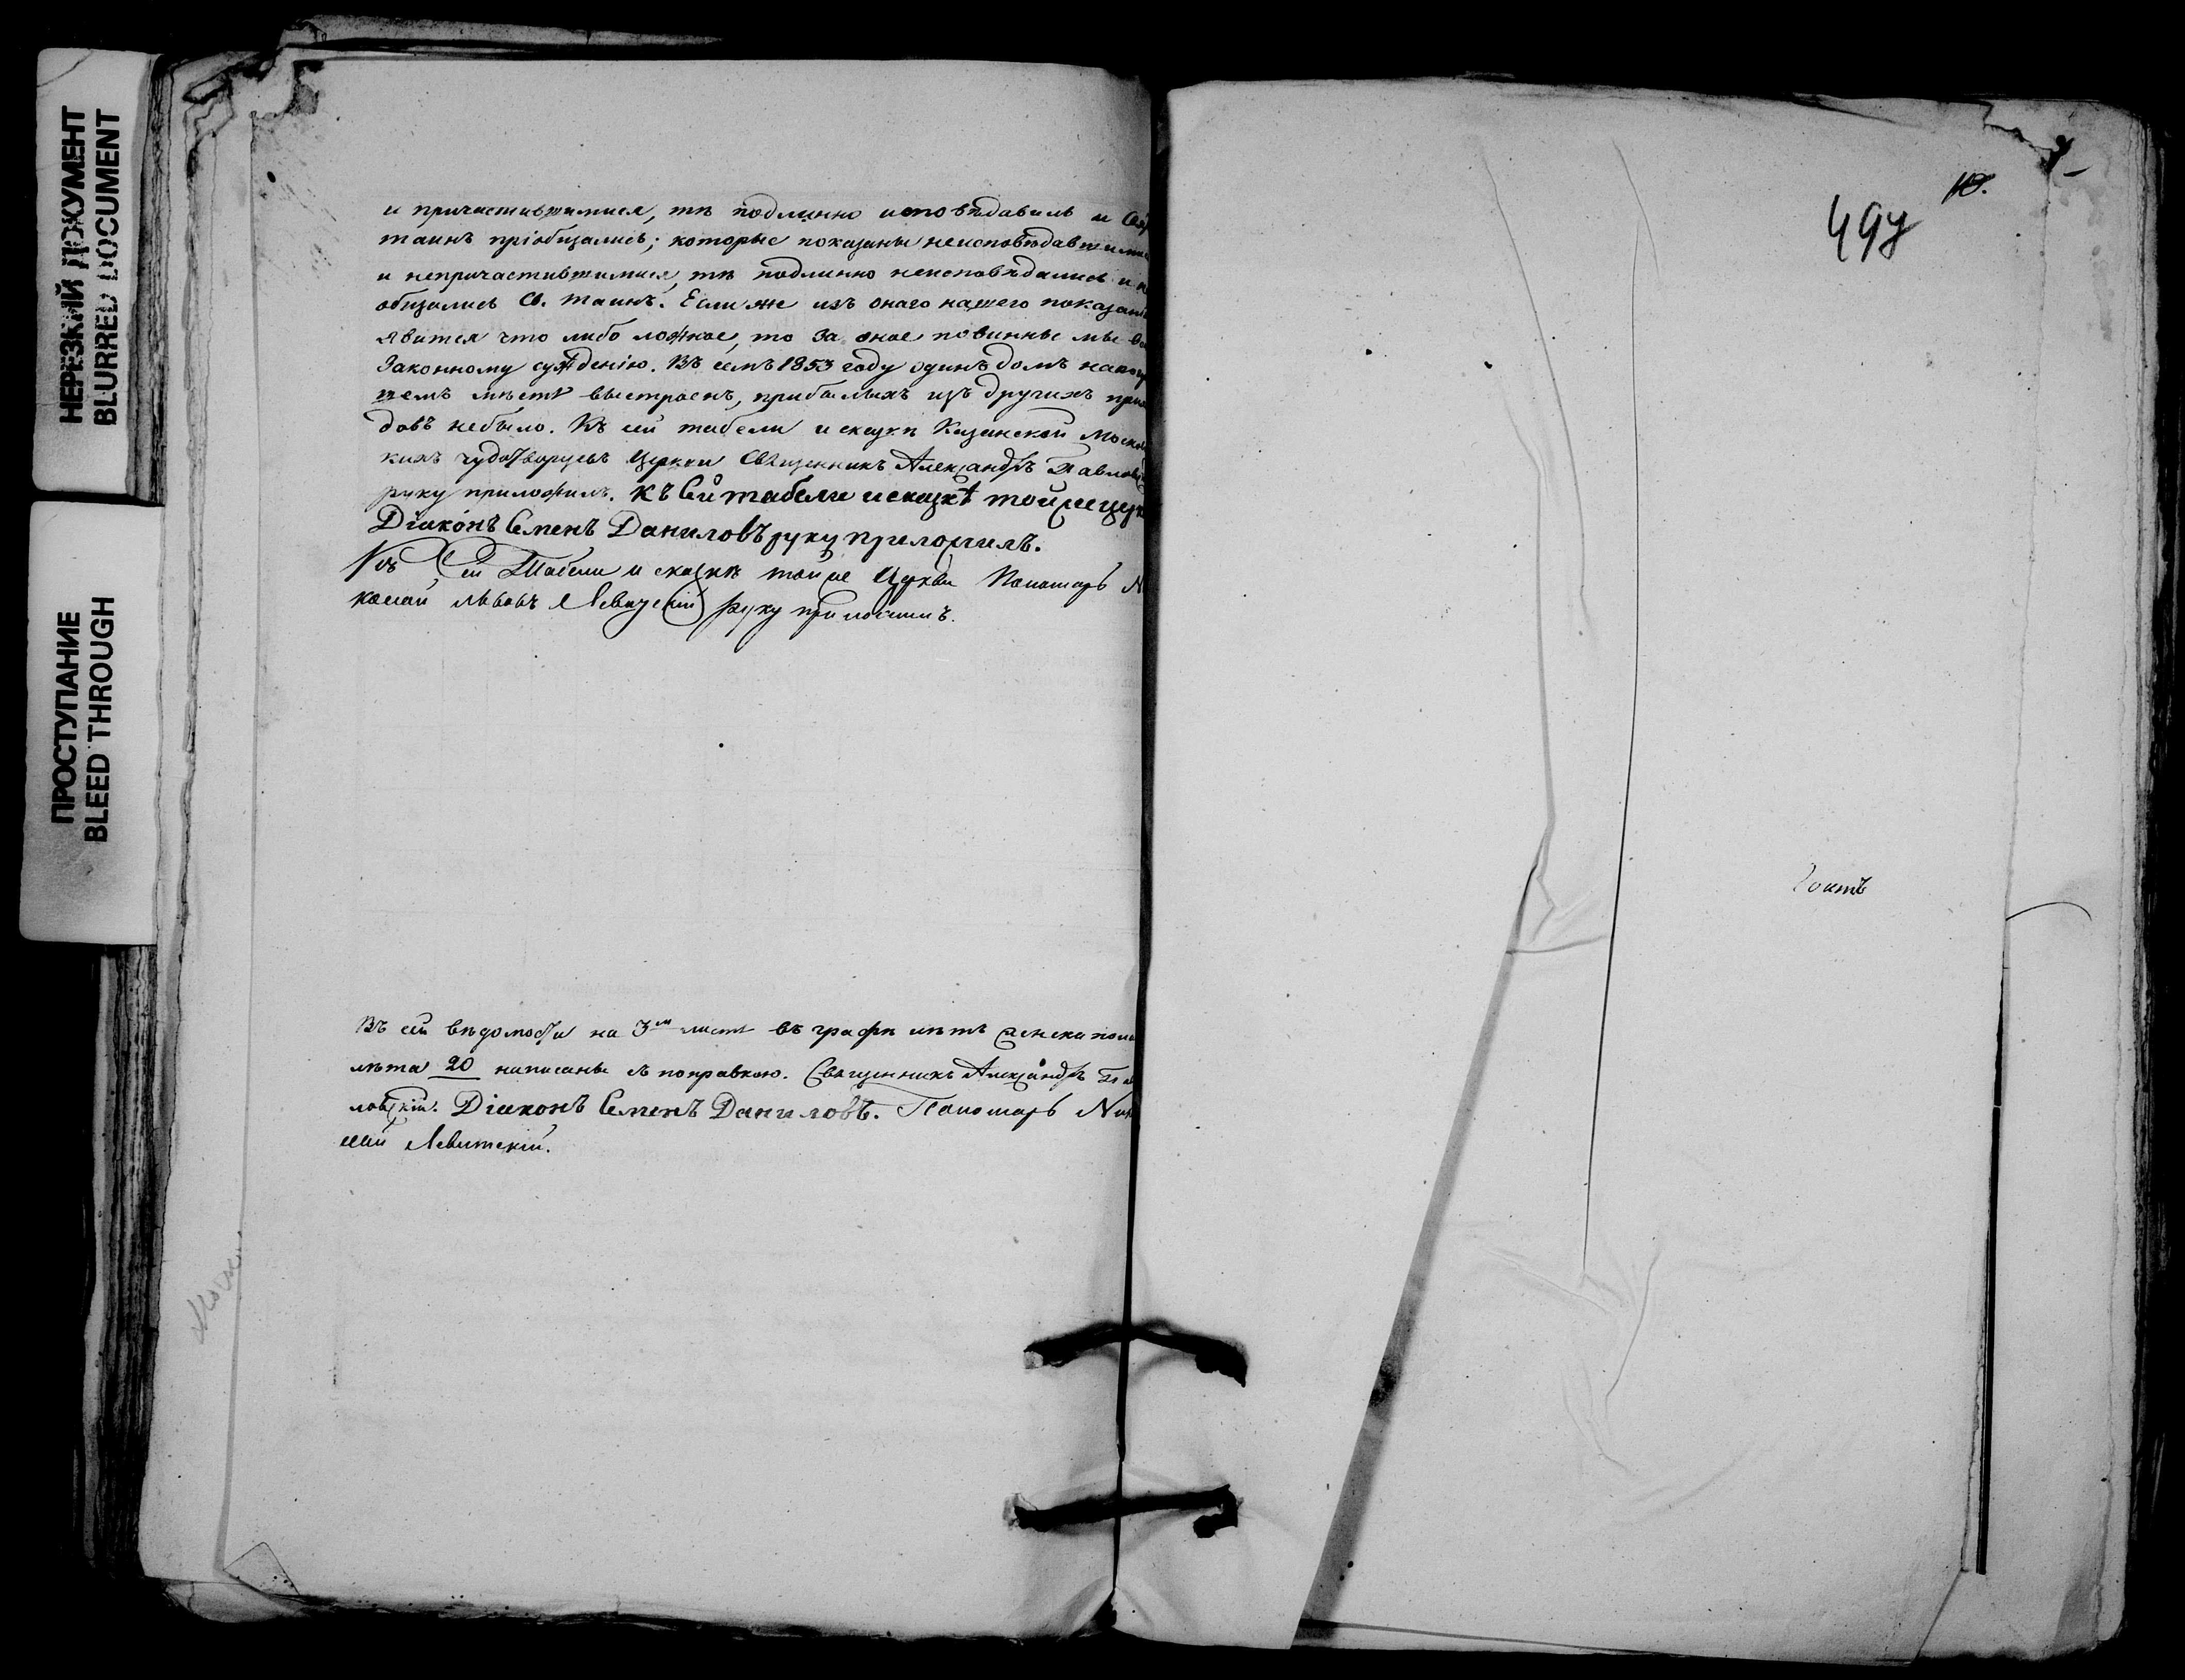 НЕРЕЗКИЙ ДОКУМЕНТ
BLURRED DOCUMENT
ПРОСТУПАНИЕ
BLEED THROUGH
и причастившимися, тѣ подлинно исповѣдавались и
таинъ пріобщались; которые показаны неисповѣдавшимис
и непричастившимися, тѣ подлинно неисповѣдались и н
общались Св. таинъ. Если же изъ онаго нашего показан
явится что либо ложное, то за оное повинны мы
законному сужденію. Въ семъ 1853 году одинъ домъ на
мѣстѣ выстроенъ, прибылыхъ изъ другихъ при
довъ небыло. Къ сей табели и сказкѣ Казанской Моско
кихъ чудотворцевъ церкви Священникъ Александръ Павлов
руку приложилъ. Къ сей табели и сказкѣ тойже церк
Діаконъ Семенъ Даниловъ руку приложилъ.
Къ сей Табели и сказкѣ тойже Церкви Пономарь Н
колай Львовъ Левицкій руку приложилъ.
Въ сей вѣдомости на 3м листѣ въ графѣ лѣтъ женска пола
лѣта 20 написаны съ поправкою. Священникъ Александръ Па
ловскій. Діаконъ Семенъ Даниловъ. Пономарь Ник
лай Левитскій.
10.
497